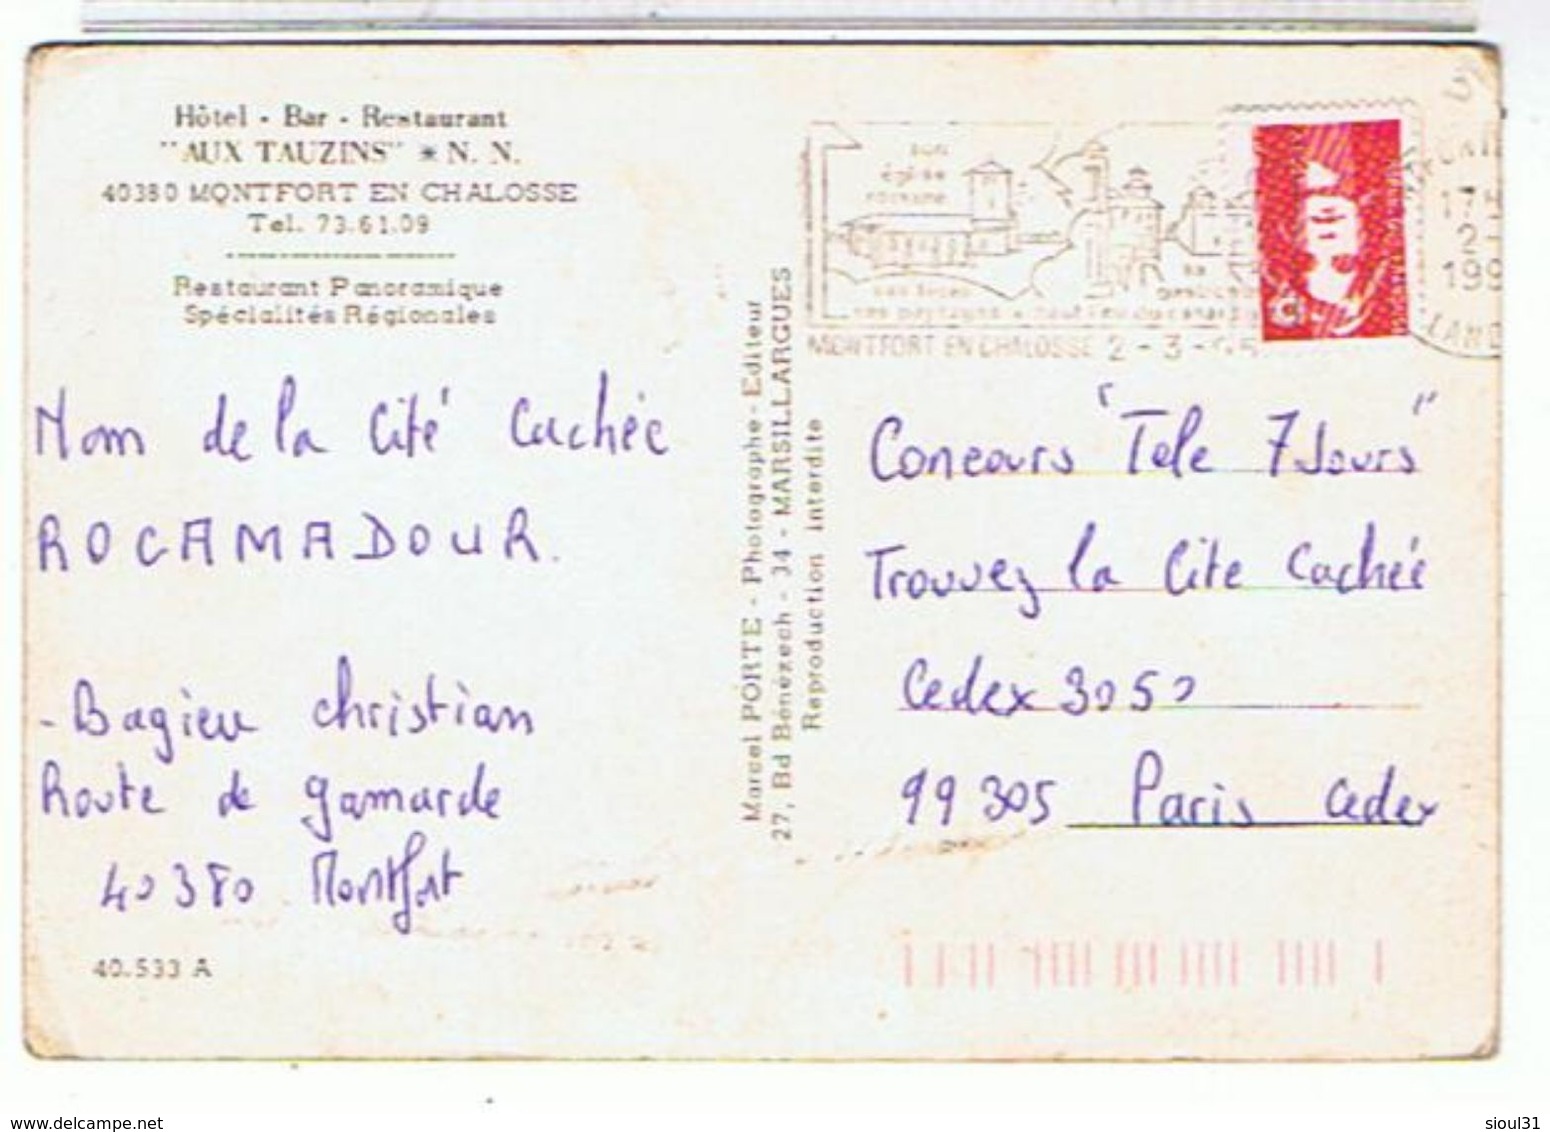 Hôtel - Bar - Restaurant
"AUX TAUZINS" * N. N.
40380 MONTFORT EN CHALOSSE
Tel. 73.61.09
Restaurant Panoramique
Spécialités Régionales
Nom de la Cité Cachée
ROCAMADOUR.
- Bagieu christian
Route de gamarde
40380 Montfort
40.533 A
Marcel PORTE - Photographe-Editeur
27, Bd Bénézech - 34 - MARSILLARGUES
Reproduction interdite
son
église
romane
sa
ses
ses paysages
MONTFORT EN CHALOSSE 2 - 3 -
17H
2-
199
LAND
Concours "Tele 7 Jours"
Trouvez la Cite Cachée
Cedex 3050
99305 Paris Cedex
www.delcampe.net
sioul31